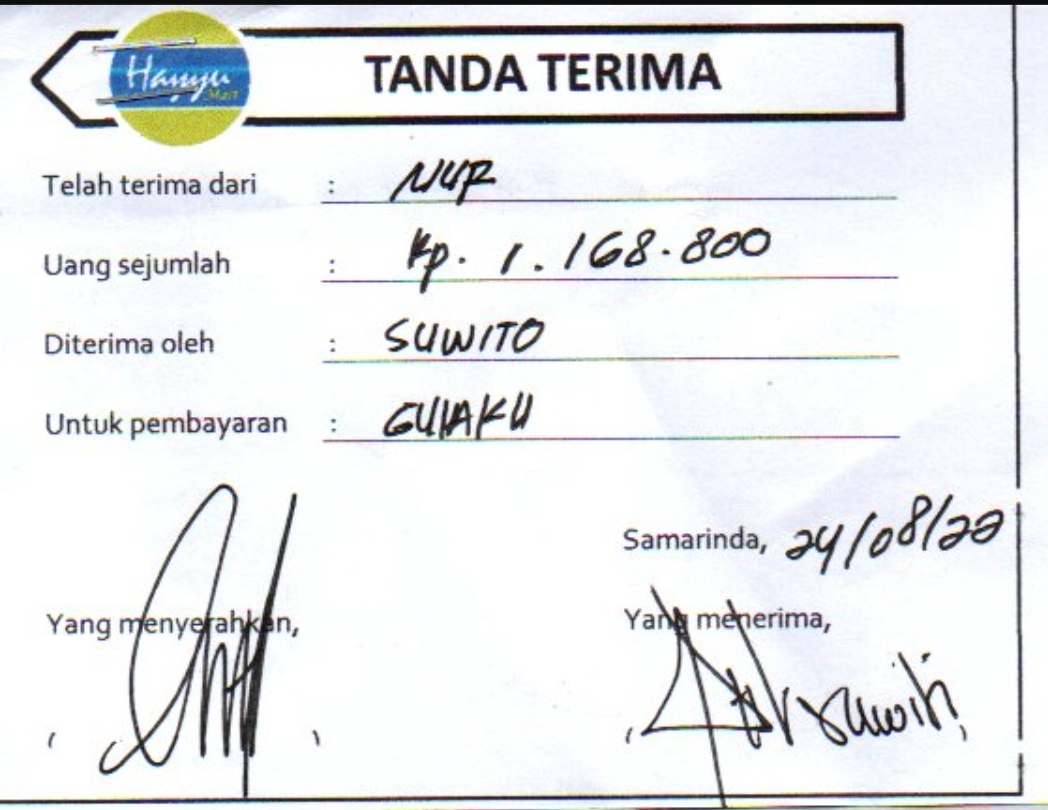 Hanyu
Mart
TANDA TERIMA
Telah terima dari : NUR
Uang sejumlah : Rp. 1.168.800
Diterima oleh : SUWITO
Untuk pembayaran : GULAKU
Samarinda, 24/08/22
Yang menyerahkan, Yang menerima,
Suwito